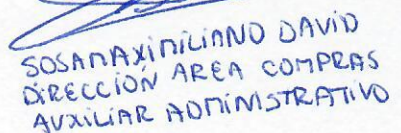 SOSA MAXIMILIANO DAVID
DIRECCIÓN AREA COMPRAS
AUXILIAR ADMINISTRATIVO